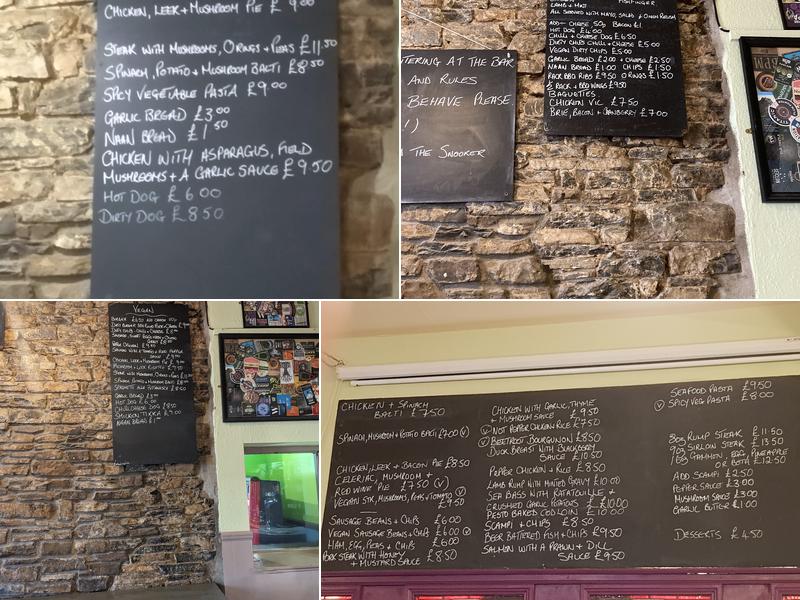 CHICKEN, LEEK + MUSHROOM PIE £ 9.00
STEAK WITH MUSHROOMS, O'RINGS + PEAS £11.50
SPINACH, POTATO + MUSHROOM BALTI £8.50
SPICY VEGETABLE PASTA £9.00
GARLIC BREAD £3.00
NAAN BREAD £1.50
CHICKEN WITH ASPARAGUS, FIELD
MUSHROOMS + A GARLIC SAUCE £9.50
HOT DOG £6.00
DIRTY DOG £8.50
TERING AT THE BAR
AND RULES
BEHAVE PLEASE
!)
THE SNOOKER
LAMB + MINT
FISHFINGER
ALL SERVED WITH MAYO, SALAD + ONION RELISH
ADD - CHEESE 50p BACON £1
HOT DOG £4.00
CHILLI + CHEESE DOG £6.50
DIRTY CHIPS CHILLI + CHEESE £5.00
VEGAN DIRTY CHIPS £5.00
GARLIC BREAD £2.00 + CHEESE £2.50
NAAN BREAD £1.00 CHIPS £1.50
RACK BBQ RIBS £9.50 O'RINGS £1.50
½ RACK + BBQ WINGS £9.50
BAGUETTES
CHICKEN VIC £7.50
BRIE, BACON + CRANBERRY £7.00
VEGAN
CHICKEN, LEEK + MUSHROOM PIE £9.00
GARLIC BREAD £3.00
HOT DOG £6.00
CHILLI CHEESE DOG £8.50
NAAN BREAD £1.50
CHICKEN + SPINACH
BALTI £7.50
SPINACH, MUSHROOM + POTATO BALTI £7.00 (V)
CHICKEN, LEEK + BACON PIE £8.50
CELERIAC, MUSHROOM +
RED WINE PIE £7.50 (V)
VEGAN STK, MUSHROOMS, PEAS + TOMATO (V)
£9.50
SAUSAGE BEANS + CHIPS £6.00
VEGAN SAUSAGE BEANS + CHIPS £6.00 (V)
HAM, EGG, PEAS + CHIPS £6.00
PORK STEAK WITH HONEY
+ MUSTARD SAUCE £8.50
CHICKEN WITH GARLIC, THYME
+ MUSHROOM SAUCE £9.50
(V) NOT PEPPER CHICKEN + RICE £7.50
(V) BEETROOT BOURGUINON £8.50
DUCK BREAST WITH BLACKBERRY
SAUCE £10.50
PEPPER CHICKEN + RICE £8.50
LAMB RUMP WITH MINTED GRAVY £10.00
SEA BASS WITH RATATOUILLE +
CRUSHED GARLIC POTATOES £10.00
PESTO BAKED COD LOIN £10.00
SCAMPI + CHIPS £8.50
BEER BATTERED FISH + CHIPS £9.50
SALMON WITH A PRAWN + DILL
SAUCE £9.50
SEAFOOD PASTA £9.50
(V) SPICY VEG PASTA £8.00
8oz RUMP STEAK £11.50
9oz SIRLOIN STEAK £13.50
10oz GAMMON, EGG, PINEAPPLE
OR BOTH £12.50
ADD SCAMPI £2.50
PEPPER SAUCE £3.00
MUSHROOM SAUCE £3.00
GARLIC BUTTER £1.00
DESSERTS £4.50